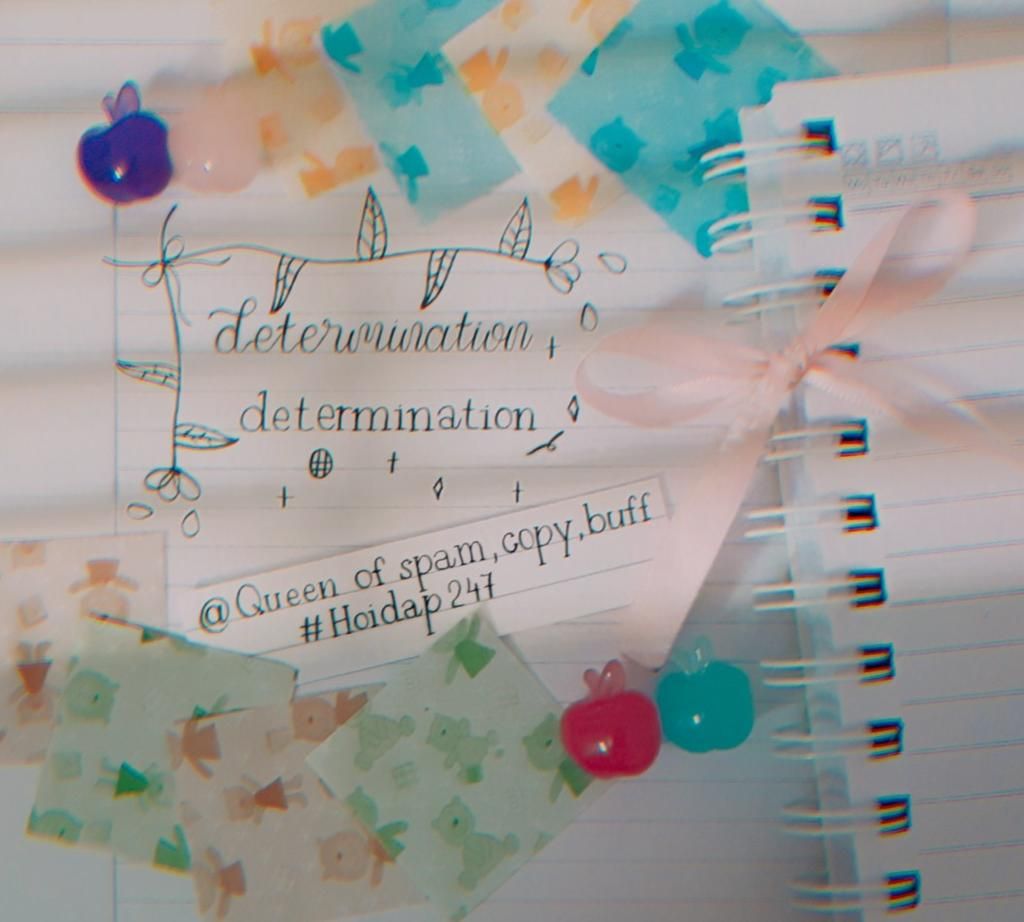 determination
determination
@Queen of spam,copy,buff
#Hoidap247